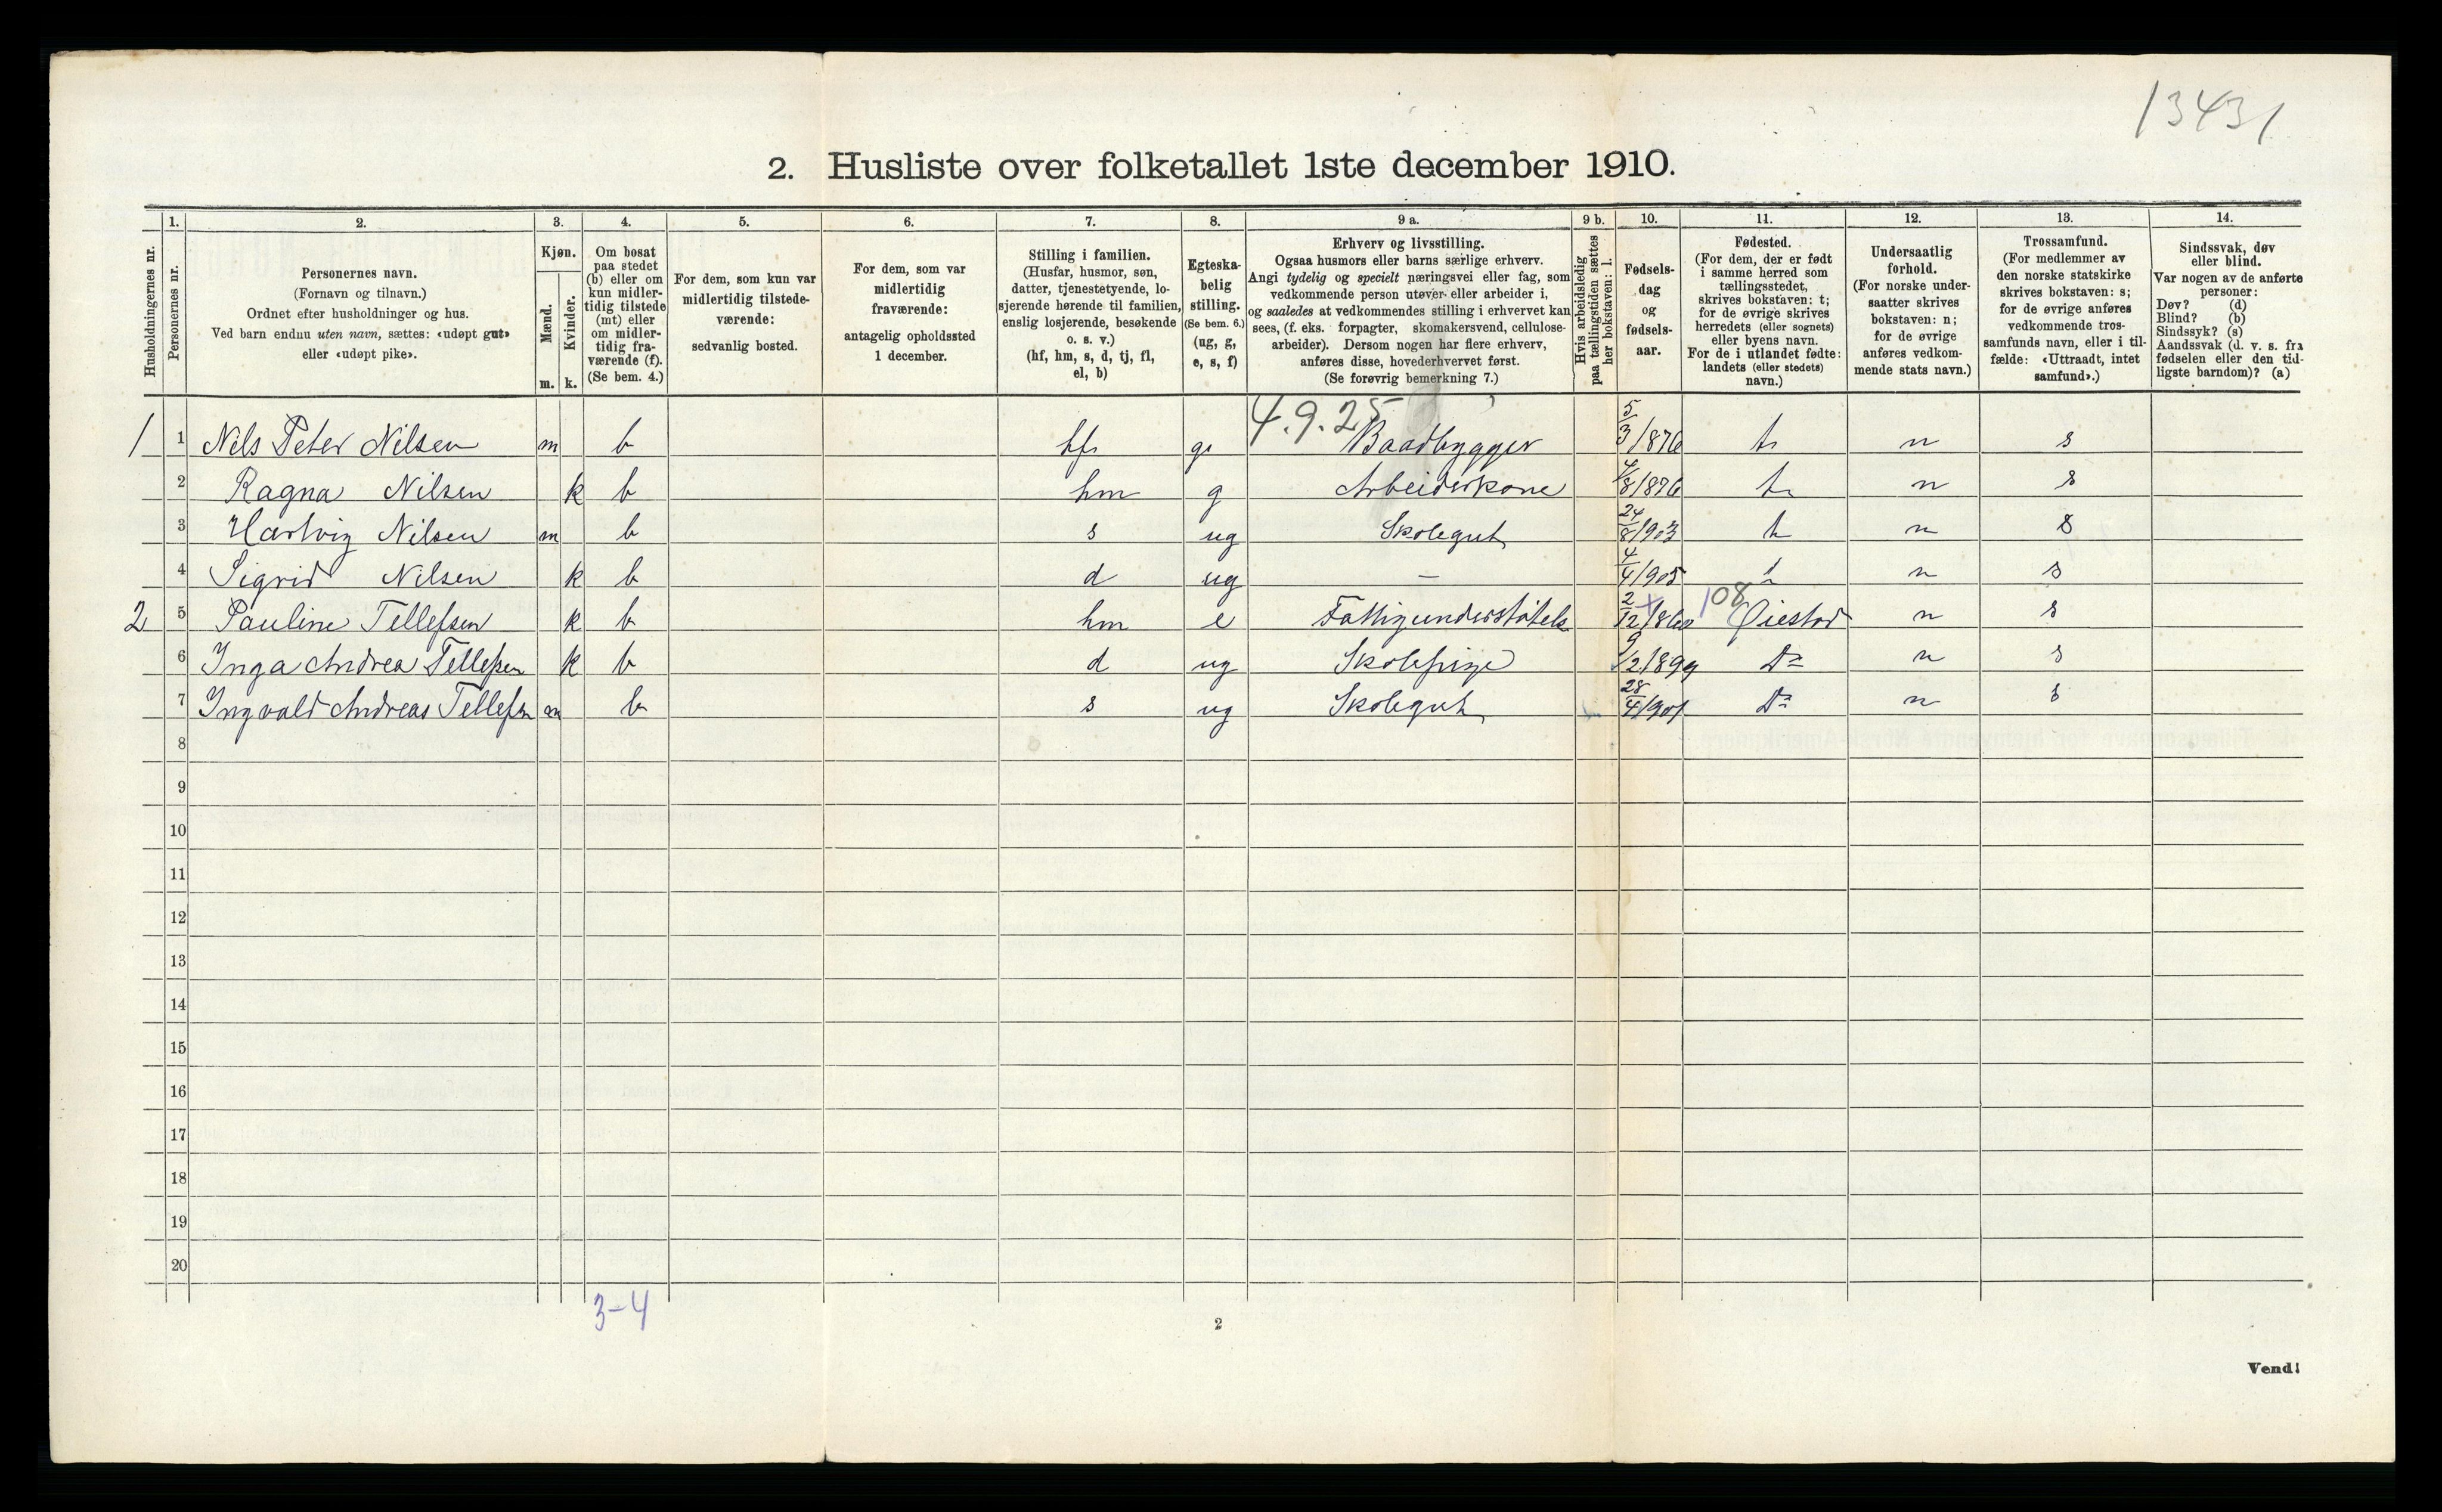 13431
2. Husliste over folketallet 1ste december 1910.
1. 2. 3. 4. 5. 6. 7. 8. 9 a. 9 b. 10. 11. 12. 13. 14.
Husholdningernes nr.
Personernes nr.
Personernes navn.
(Fornavn og tilnavn.)
Ordnet efter husholdninger og hus.
Ved barn endnu uten navn, sættes: «udøpt gut»
eller «udøpt pike».
Kjøn.
Mænd.
Kvinder.
m. k.
Om bosat
paa stedet
(b) eller om
kun midler-
tidig tilstede
(mt) eller
om midler-
tidig fra-
værende (f).
(Se bem. 4.)
For dem, som kun var
midlertidig tilstede-
værende:
sedvanlig bosted.
For dem, som var
midlertidig
fraværende:
antagelig opholdssted
1 december.
Stilling i familien.
(Husfar, husmor, søn,
datter, tjenestetyende, lo-
sjerende hørende til familien,
enslig losjerende, besøkende
o. s. v.)
(hf, hm, s, d, tj, fl,
el, b)
Egteska-
belig
stilling.
(Se bem. 6.)
(ug, g,
e, s, f)
Erhverv og livsstilling.
Ogsaa husmors eller barns særlige erhverv.
Angi tydelig og specielt næringsvei eller fag, som
vedkommende person utøver eller arbeider i,
og saaledes at vedkommendes stilling i erhvervet kan
sees, (f. eks. forpagter, skomakersvend, cellulose-
arbeider). Dersom nogen har flere erhverv,
anføres disse, hovederhvervet først.
(Se forøvrig bemerkning 7.)
Hvis arbeidsledig
paa tællingstiden sættes
her bokstaven: l.
Fødsels-
dag
og
fødsels-
aar.
Fødested.
(For dem, der er født
i samme herred som
tællingsstedet,
skrives bokstaven: t;
for de øvrige skrives
herredets (eller sognets)
eller byens navn.
For de i utlandet fødte:
landets (eller stedets)
navn.)
Undersaatlig
forhold.
(For norske under-
saatter skrives
bokstaven: n;
for de øvrige
anføres vedkom-
mende stats navn.)
Trossamfund.
(For medlemmer av
den norske statskirke
skrives bokstaven: s;
for de øvrige anføres
vedkommende tros-
samfunds navn, eller i til-
fælde: «Uttraadt, intet
samfund».)
Sindssvak, døv
eller blind.
Var nogen av de anførte
personer:
Døv? (d)
Blind? (b)
Sindssyk? (s)
Aandssvak (d. v. s. fra
fødselen eller den tid-
ligste barndom)? (a)
4.9.25
1 1 Nels Peter Nilsen m b hf g Baadbygger 5/3/876 t n s
2 Ragna Nilsen k b hm g Arbeiderkone 4/8/876 t n s
3 Hartvig Nilsen m b s ug Skolegut 24/8/903 t n s
4 Sigrid Nilsen k b d ug — 4/4/905 t n s
108
2 5 Pauline Tellefsen k b hm e Fattigunderstøtels 2/12/860 Øiestad n s
6 Inga Andrea Tellefsen k b d ug Skolepige 9/2/899 Do n s
7 Ingvald Andreas Tellefsen m b s ug Skolegut 28/4/901 Do n s
8
9
10
11
12
13
14
15
16
17
18
19
20
3-4
2
Vend!